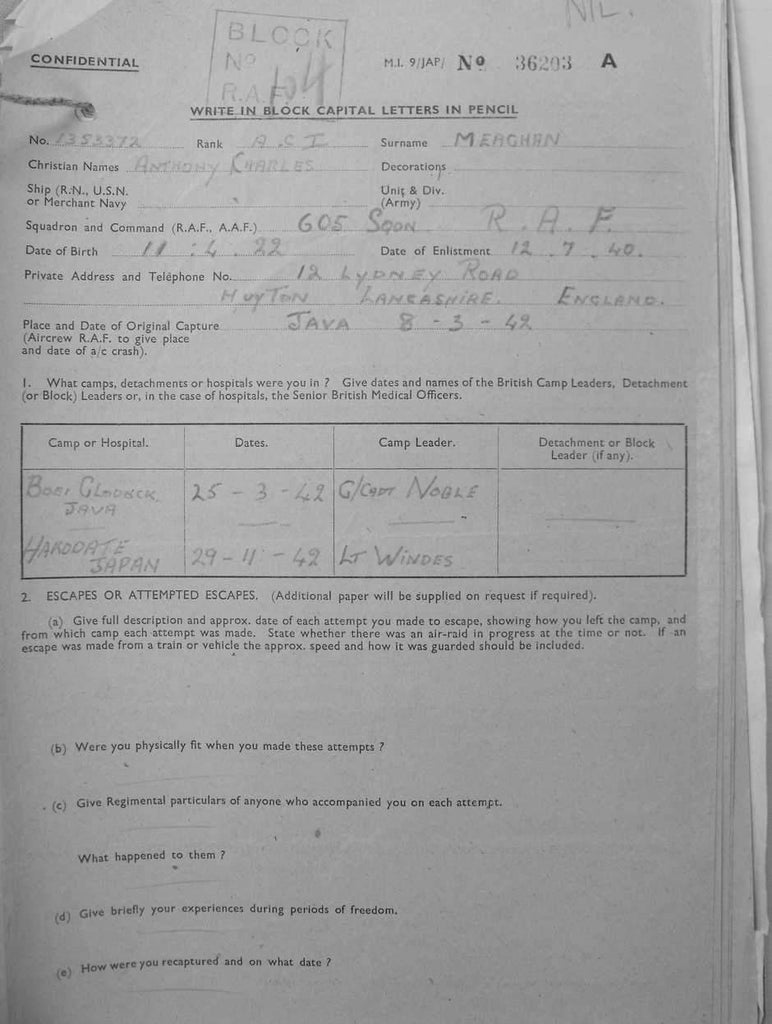 NIL.
BLOCK
No
R.A.F. 104
CONFIDENTIAL
M.I. 9/JAP/ No 36203 A
WRITE IN BLOCK CAPITAL LETTERS IN PENCIL
No. 1353372 Rank A.C.I. Surname MEAGHAN
Christian Names ANTHONY CHARLES Decorations
Ship (R.N., U.S.N. Unit & Div.
or Merchant Navy (Army)
Squadron and Command (R.A.F., A.A.F.) 605 SQDN R.A.F.
Date of Birth 11.4.22 Date of Enlistment 12.7.40.
Private Address and Telephone No. 12 LYDNEY ROAD
HUYTON LANCASHIRE. ENGLAND.
Place and Date of Original Capture JAVA 8-3-42
(Aircrew R.A.F. to give place
and date of a/c crash).
1. What camps, detachments or hospitals were you in ? Give dates and names of the British Camp Leaders, Detachment
(or Block) Leaders or, in the case of hospitals, the Senior British Medical Officers.
Camp or Hospital. Dates. Camp Leader. Detachment or Block
Leader (if any).
BOEI GLODOCK 25-3-42 G/CAPT NOBLE
JAVA
HAKODATE 29-11-42 LT WINDES
JAPAN
2. ESCAPES OR ATTEMPTED ESCAPES. (Additional paper will be supplied on request if required).
(a) Give full description and approx. date of each attempt you made to escape, showing how you left the camp, and
from which camp each attempt was made. State whether there was an air-raid in progress at the time or not. If an
escape was made from a train or vehicle the approx. speed and how it was guarded should be included.
(b) Were you physically fit when you made these attempts ?
(c) Give Regimental particulars of anyone who accompanied you on each attempt.
What happened to them ?
(d) Give briefly your experiences during periods of freedom.
(e) How were you recaptured and on what date ?